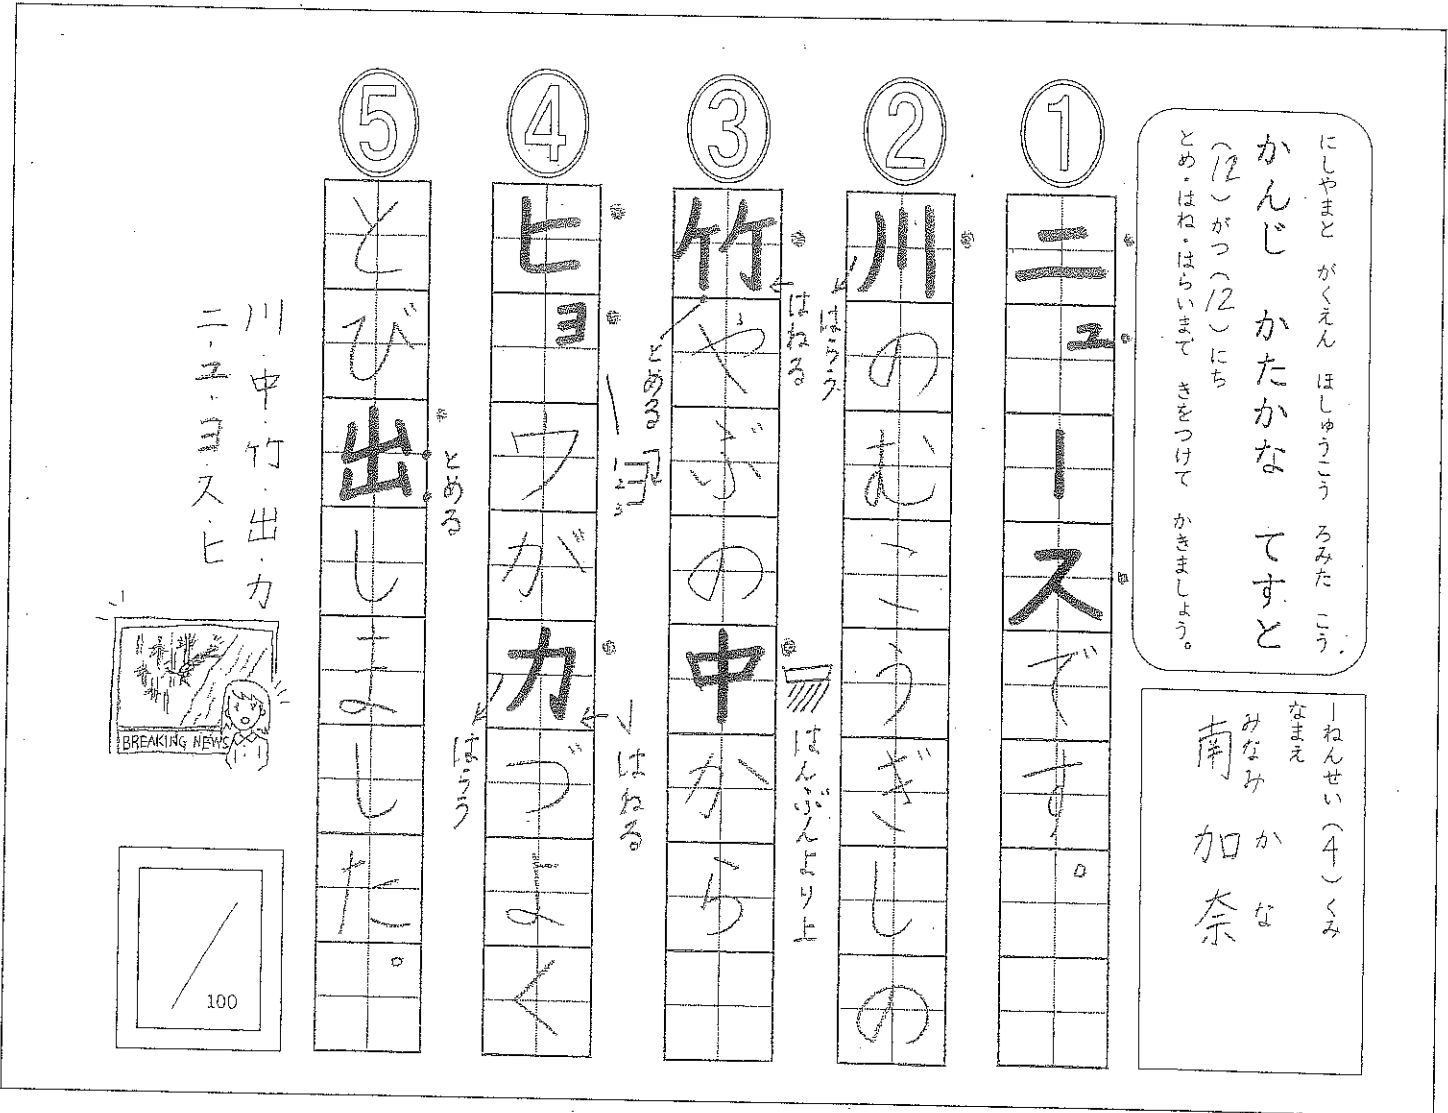 にしやまと がくえん ほしゅうこう ろみた こう
かんじ かたかな てすと
(12)がつ(12)にち
とめ・はね・はらいまで きをつけて かきましょう。
一ねんせい(4)くみ
なまえ
みなみ かな
南 加奈
① ニュースです。
② 川のむこうぎしの
はらう
③ 竹やぶの中から
はねる
とめる
はんぶんより上
④ ヒョウが力づよく
1
2
3
はねる。
はらう
⑤ とび出しました。
とめる
川・中・竹・出・力
ニ・ユ・ヨ・ス・ヒ
BREAKING NEWS
100